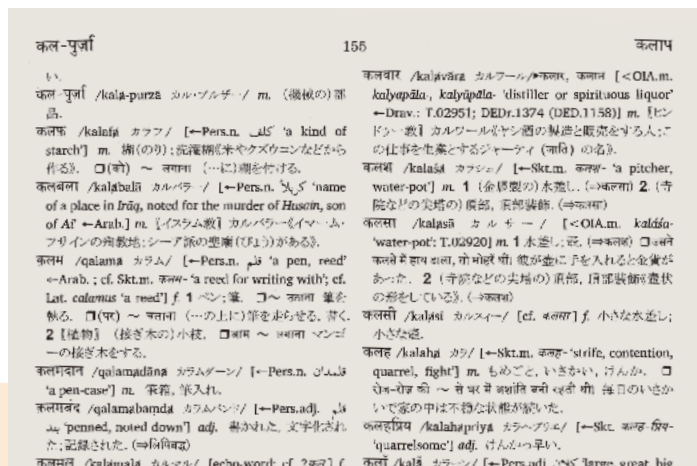 कल-पुर्ज़ा 155 कलाप
い.
कल-पुर्ज़ा /kala-purzā カル・プルザー/ m. (機械の)部
品.
कलफ़ /kalafa カラフ/ [←Pers.n. کلف 'a kind of
starch'] m. 糊(のり);洗濯糊《米やクズウコンなどから
作る》. □(को) 〜 लगाना (…に)糊を付ける.
कलबला /kalabalā カルバラー/ [←Pers.n. 'name
of a place in Irāq, noted for the murder of Husain, son
of Ali' ←Arab.] m. 〖イスラム教〗カルバラー《イマーム・
フサインの殉教地;シーア派の聖廟(びょう)がある》.
क़लम /qalama カラム/ [←Pers.n. قلم 'a pen, reed'
←Arab.; cf. Skt.m. कलम- 'a reed for writing with'; cf.
Lat. calamus 'a reed'] f. 1 ペン;筆. □〜 उठाना 筆を
執る. □(पर) 〜 चलाना (…の上に)筆を走らせる, 書く.
2〖植物〗(接ぎ木の)小枝. □आम 〜 लगाना マンゴ
ーの接ぎ木をする.
क़लमदान /qalamadāna カラムダーン/ [←Pers.n. قلمدان
'a pen-case'] m. 筆箱, 筆入れ.
क़लमबंद /qalamabaṃda カラムバンド/ [←Pers.adj. قلم
بند 'penned, noted down'] adj. 書かれた, 文字化され
た;記録された. (⇒लिपिबद्ध)
कलमल /kalamala カルマル/ [echo-word; cf. f.
कलवार /kalavāra カルワール/▶कलार, कलाल [<OIA.m.
kalyapāla-, kalyūpāla- 'distiller or spirituous liquor'
←Drav.: T.02951; DEDr.1374 (DED.1158)] m. 〖ヒン
ドゥー教〗カルワール《ヤシ酒の製造と販売をする人;こ
の仕事を生業とするジャーティ (जाति) の名》.
कलश /kalaśa カラシュ/ [←Skt.m. कलश- 'a pitcher,
water-pot'] m. 1 (金属製の)水差し. (⇒कलसा) 2 (寺
院などの尖塔の)頂部, 頂部装飾. (⇒कलसा)
कलसा /kalasā カルサー/ [<OIA.m. kaláśa-
'water-pot': T.02920] m. 1 水差し;壺. (⇒कलश) □उसने
कलसे में हाथ डाला, तो मोहरें थीं। 彼が壺に手を入れると金貨が
あった. 2 (寺院などの尖塔の)頂部, 頂部装飾《壺状
の形をしている》. (⇒कलश)
कलसी /kalasī カルスィー/ [cf. कलसा] f. 小さな水差し;
小さな壺.
कलह /kalaha カラ/ [←Skt.m. कलह- 'strife, contention,
quarrel, fight'] m. もめごと, いさかい, けんか. □
रोज़-रोज़ की 〜 से घर में अशांति बनी रहती थी। 毎日のいさか
いで家の中は不穏な状態が続いた.
कलहप्रिय /kalahapriya カラヘプリエ/ [←Skt. कलह-प्रिय-
'quarrelsome'] adj. けんかっ早い.
कलाँ /kalā̃ カラーン/ [←Pers.adj. کلان 'large, great, big